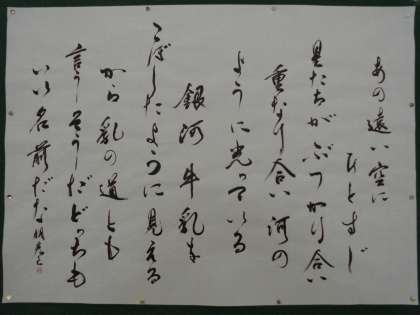 あの遠い空に
ひとすじ
星たちがぶつかり合い
重なり合い河の
ように光っている
銀河牛乳を
こぼしたように見える
から乳の道とも
言うそうだどっちも
いい名前だな